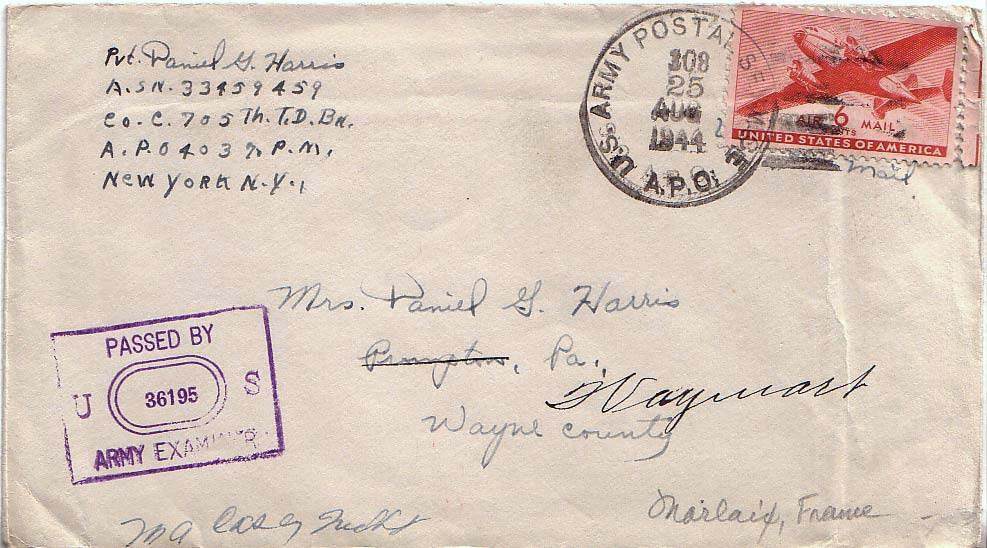 Pvt. Daniel G. Harris
A.S.N. 33459459
Co. C. 705 Th. T.D. Bn.
A.P.O 403 % P.M.
New York N.Y.,
U.S. ARMY POSTAL
308
25
AUG
1944
A.P.O.
AIR 6 MAIL
UNITED STATES OF AMERICA
Mail
Mrs. Daniel G. Harris
Prompton, Pa.,
Waymart
Wayne County
PASSED BY
U 36195 S
ARMY EXAMINER
Morlaix, France